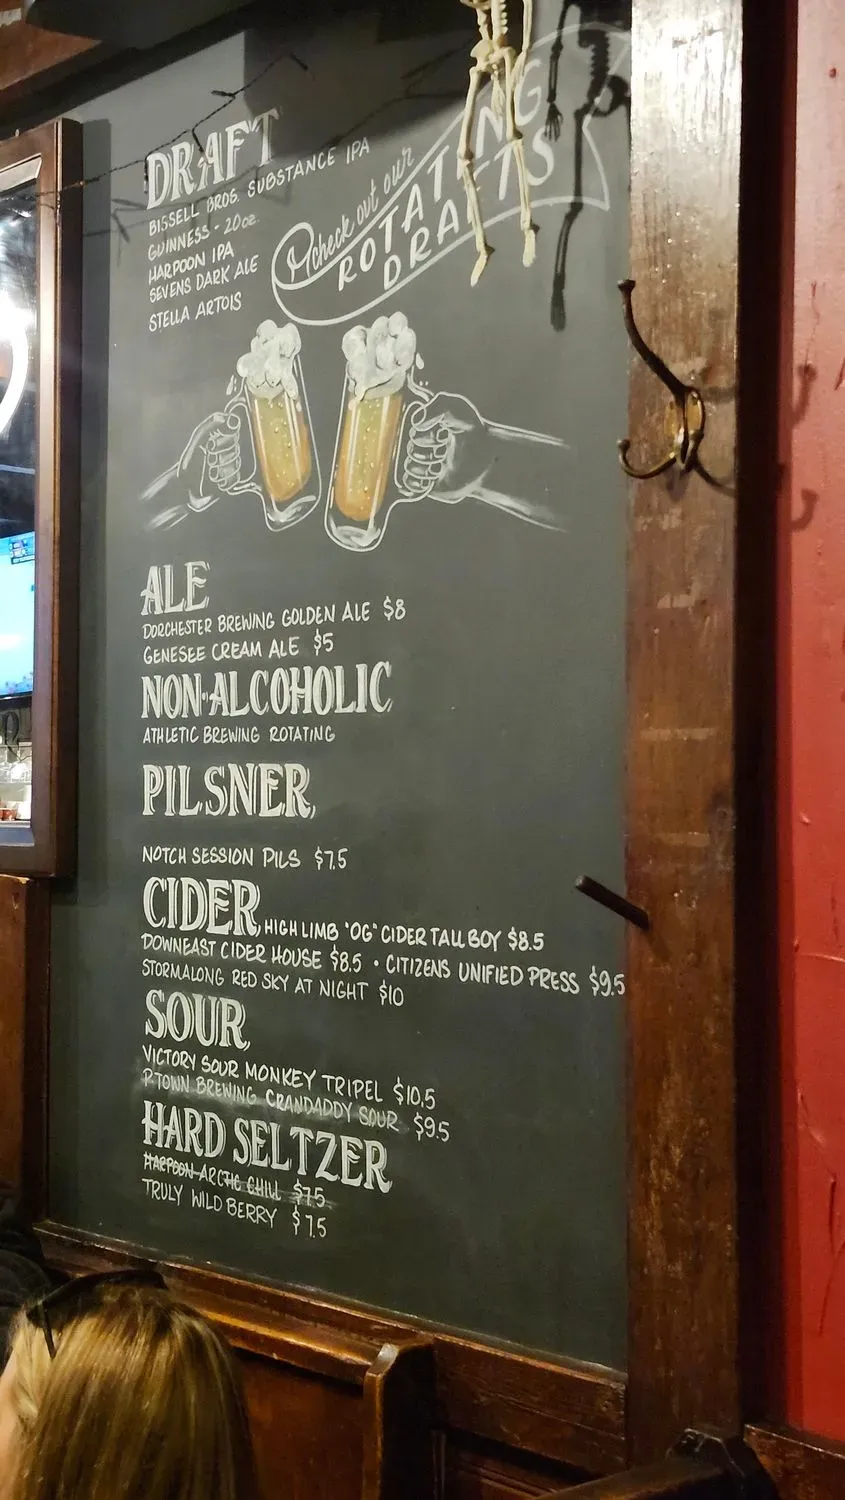 DRAFT
BISSELL BROS. SUBSTANCE IPA
GUINNESS - 20oz.
HARPOON IPA
SEVENS DARK ALE
STELLA ARTOIS
check out our
ROTATING
DRAFTS
ALE
DORCHESTER BREWING GOLDEN ALE $8
GENESEE CREAM ALE $5
NON-ALCOHOLIC
ATHLETIC BREWING ROTATING
PILSNER
NOTCH SESSION PILS $7.5
CIDER HIGH LIMB "OG" CIDER TALLBOY $8.5
DOWNEAST CIDER HOUSE $8.5 • CITIZENS UNIFIED PRESS $9.5
STORMALONG RED SKY AT NIGHT $10
SOUR
VICTORY SOUR MONKEY TRIPEL $10.5
P-TOWN BREWING CRANDADDY SOUR $9.5
HARD SELTZER
HARPOON ARCTIC CHILL $7.5
TRULY WILD BERRY $7.5